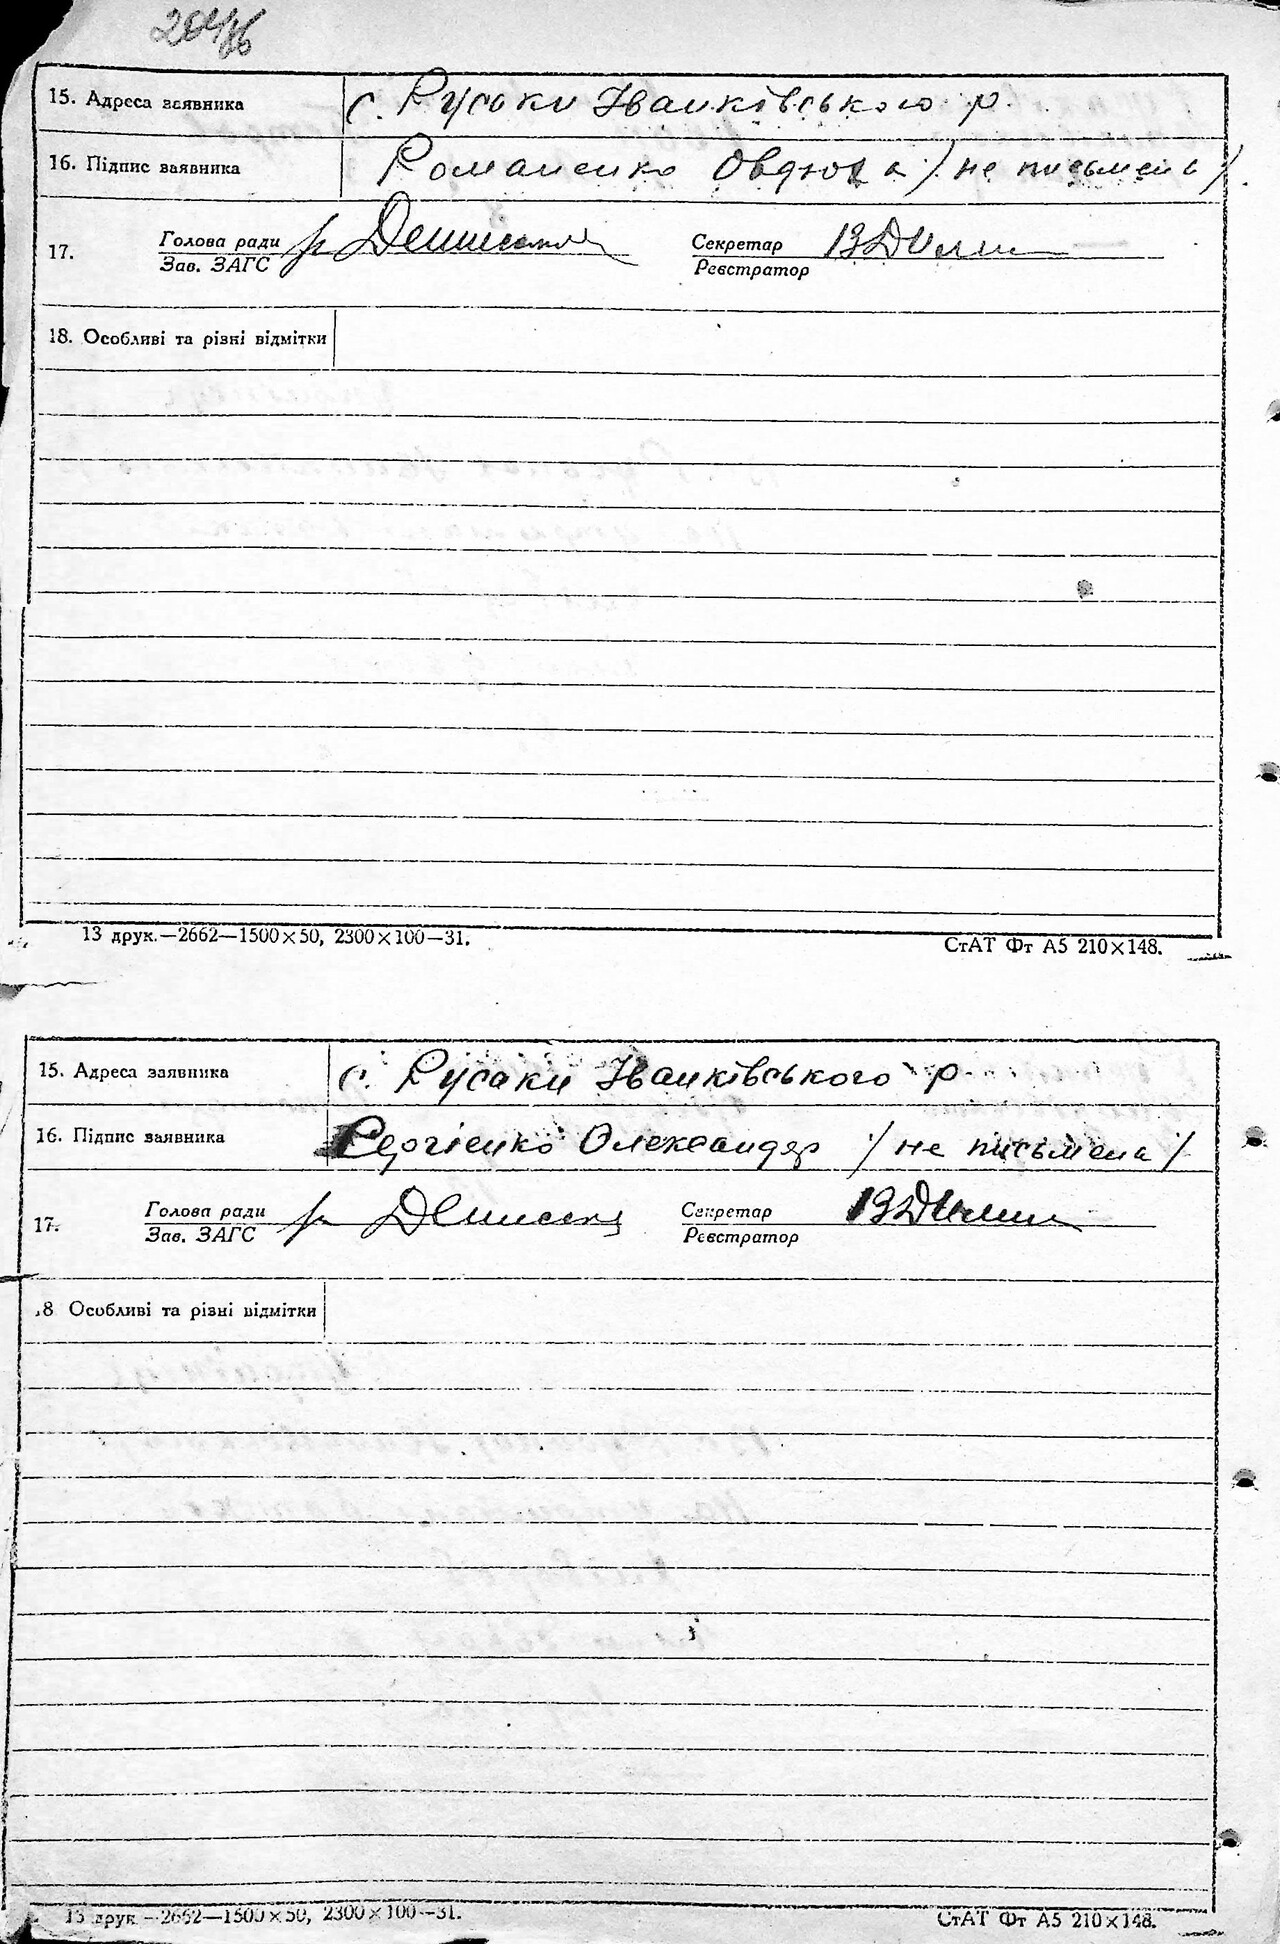 15. Адреса заявника с. Русаки Іванківського р.
16. Підпис заявника Романенко Овдюха /не письмена/.
17. Голова ради
Зав. ЗАГС
Секретар
Реєстратор
18. Особливі та різні відмітки
13 друк.—2662—1500×50, 2300×100—31. СтАТ Фт А5 210×148.
15. Адреса заявника с. Русаки Іванківського р.
16. Підпис заявника Сергієнко Олександр /не письмена/
17. Голова ради
Зав. ЗАГС
Секретар
Реєстратор
8 Особливі та різні відмітки
13 друк.—2662—1500×50, 2300×100—31. СтАТ Фт А5 210×148.